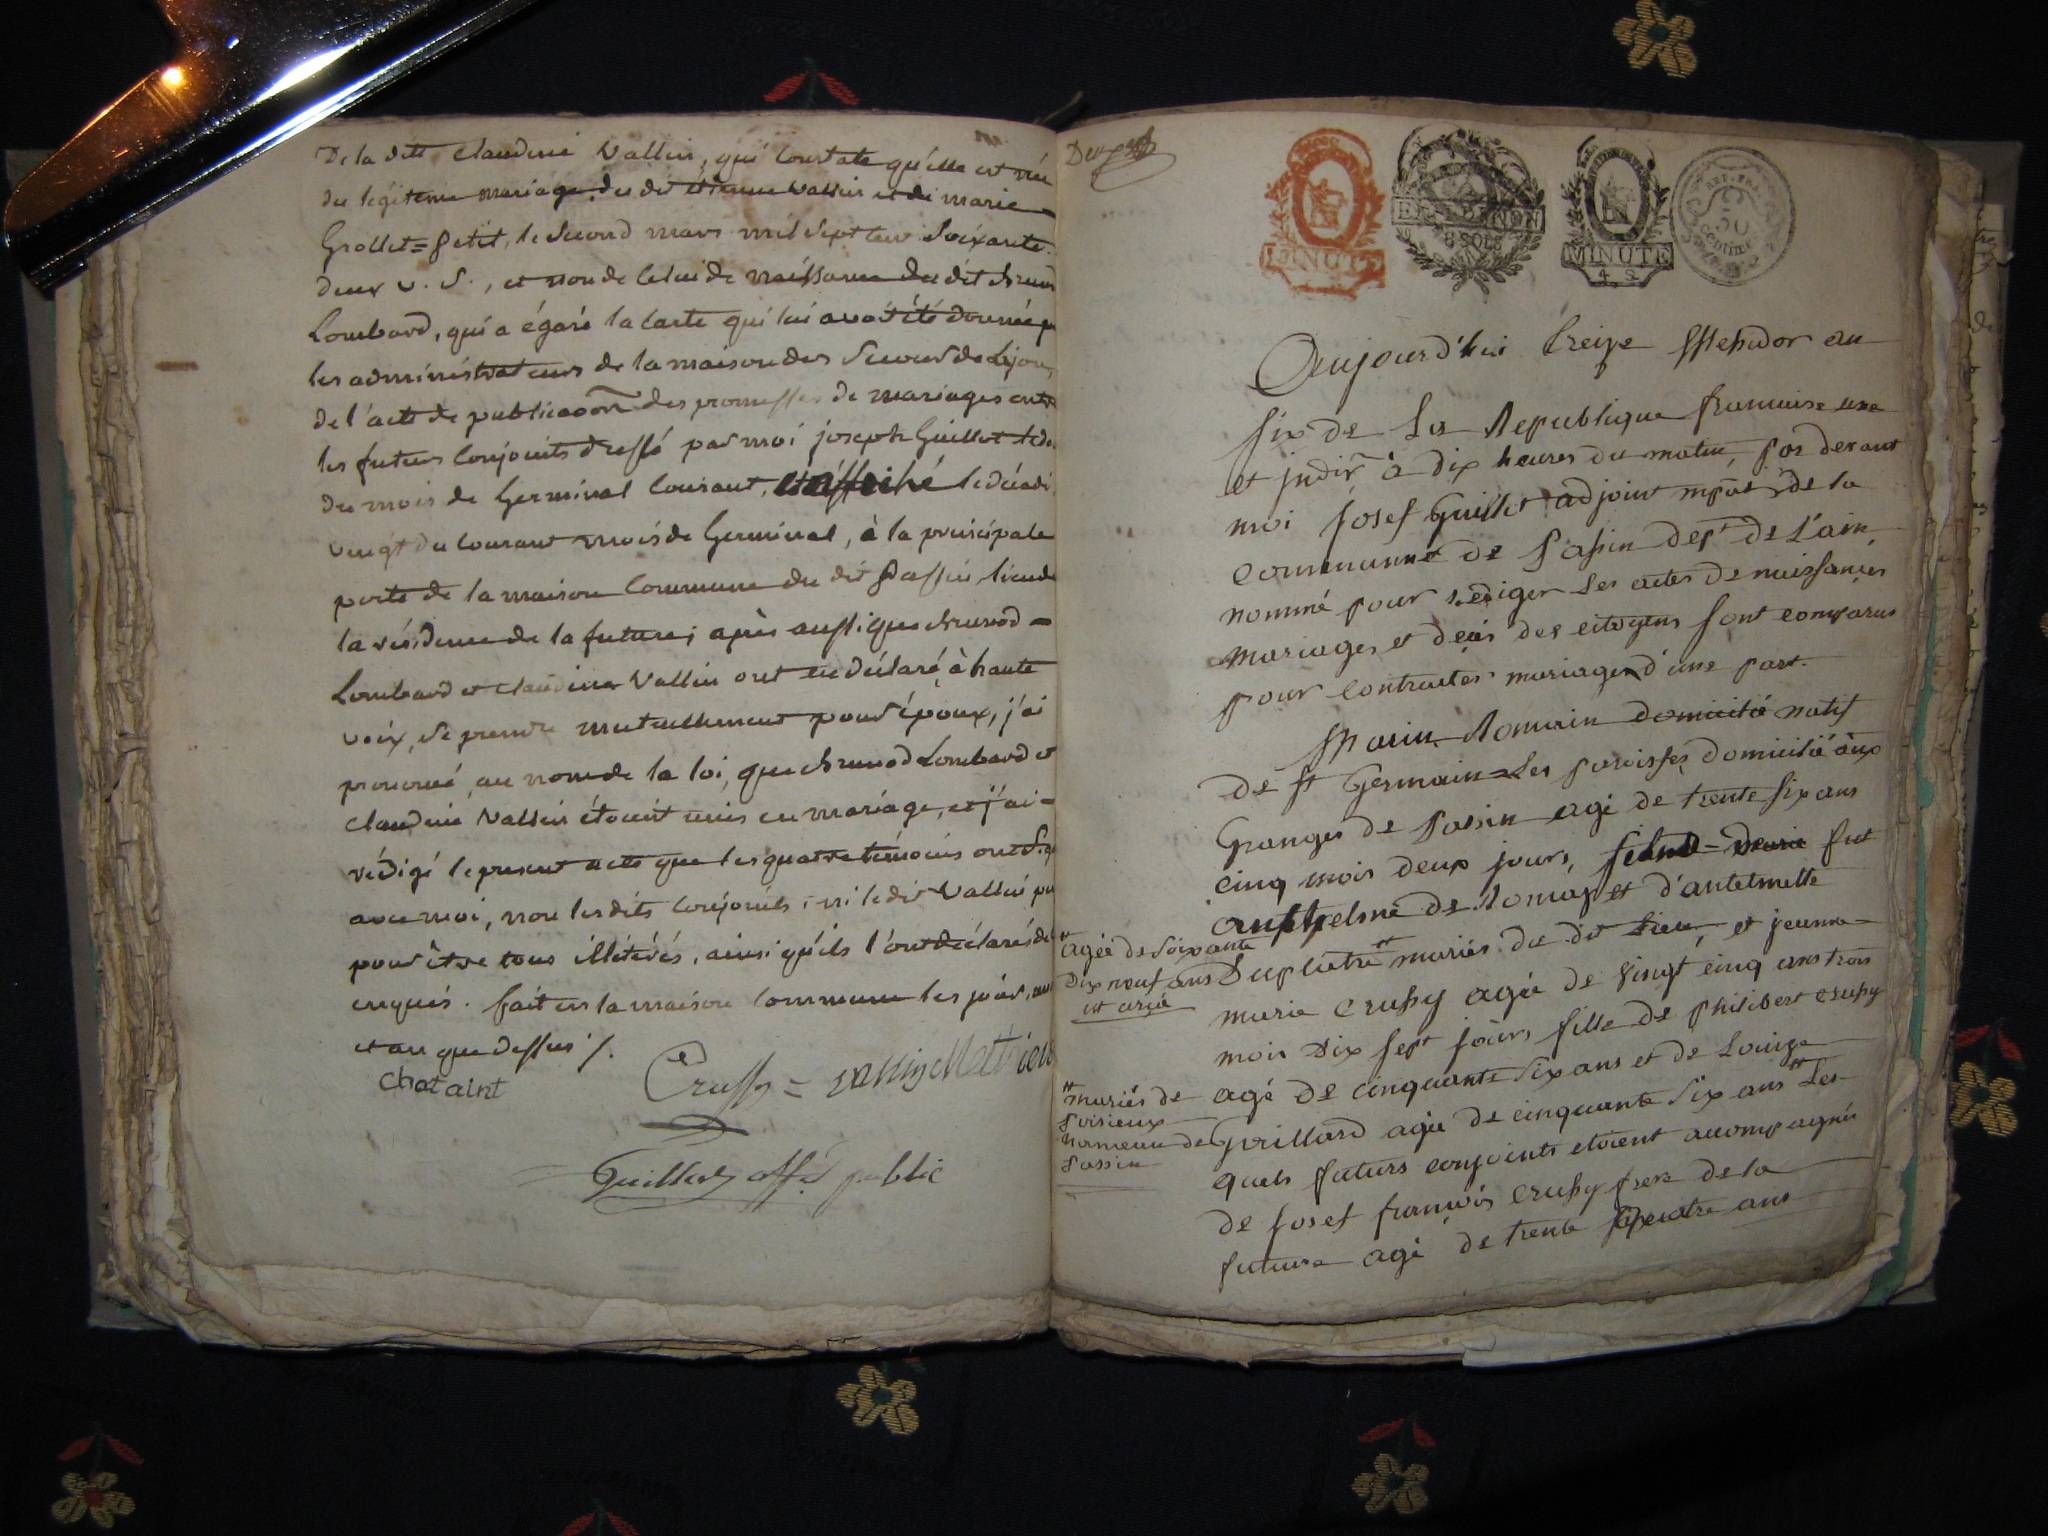 De la ditte Claudine Vallin, qui Constate qu'elle est née
du légitime mariage du dit étienne Vallin et de marie =
Grollet = petit, le second mars mil sept cent Soixante
deux v. S., et non de Celui de naissance du dit
Lombard, qui a égaré la Carte qui lui avoit été donnée
les administrateurs de la maison des Secours de
de l'acte de publication des promesses de mariages entre
les futurs Conjoints dressé par moi joseph Guillot
du mois de Germinal Courant, et affiché le décadi
vingt du Courant mois de Germinal, à la principale
porte de la maison Commune du dit Passin, lieu de
la résidence de la future; après aussi que =
Lombard et Claudine Vallin ont eu déclaré, à haute
voix, se prendre mutuellement pour époux, j'ai
prononcé, au nom de la loi, que Lombard et
Claudine Vallin étoient unis en mariage, et j'ai =
rédigé le present acte que les quatre témoins ont
avec moi, non les dits Conjoints, ni le dit Vallin
pour être tous illétérés, ainsi qu'ils l'ont déclarés de
enquis. fait en la maison Commune les jour,
et an que dessus /.
Chataint Crussy = vallin
Guillot offi. public
MINUTE
8 SOLS
MINUTE
4 S
50
centimes
Aujourd'hui treize Messidor an
six de La Republique francaise une
et indiv. à dix heures du matin, par devant
moi Josef Guillot adjoint mpal de la
Commune de Passin dept de L'ain,
nommé pour rediger Les actes de naissances
mariages et decés des citoyens sont comparus
pour contracter mariage d'une part.
Marin Romain domicilié natif
De st Germain = Les paroisses, domicilié aux
Granges de Passin agé de trente six ans
cinq mois deux jours, fut
anthelme de Romain et d'antelmette
mariés du dit Lieu, et jeanne =
marie Crussy agée de vingt cinq ans trois
mois Dix sept jours fille de philibert crussy
agé de cinquante six ans et de Louise
Grillard agée de cinquante six ans Les
quels futurs conjoints etoient accompagnés
de Josef françois Crussy frere de la
future agé de trente quatre ans
agée de Soixante
Dix neuf ans
mariés de
Poisieux
hameau de
Passin